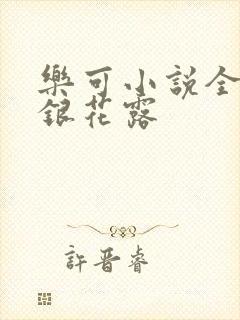 樂可小說全
銀花露
許晋睿